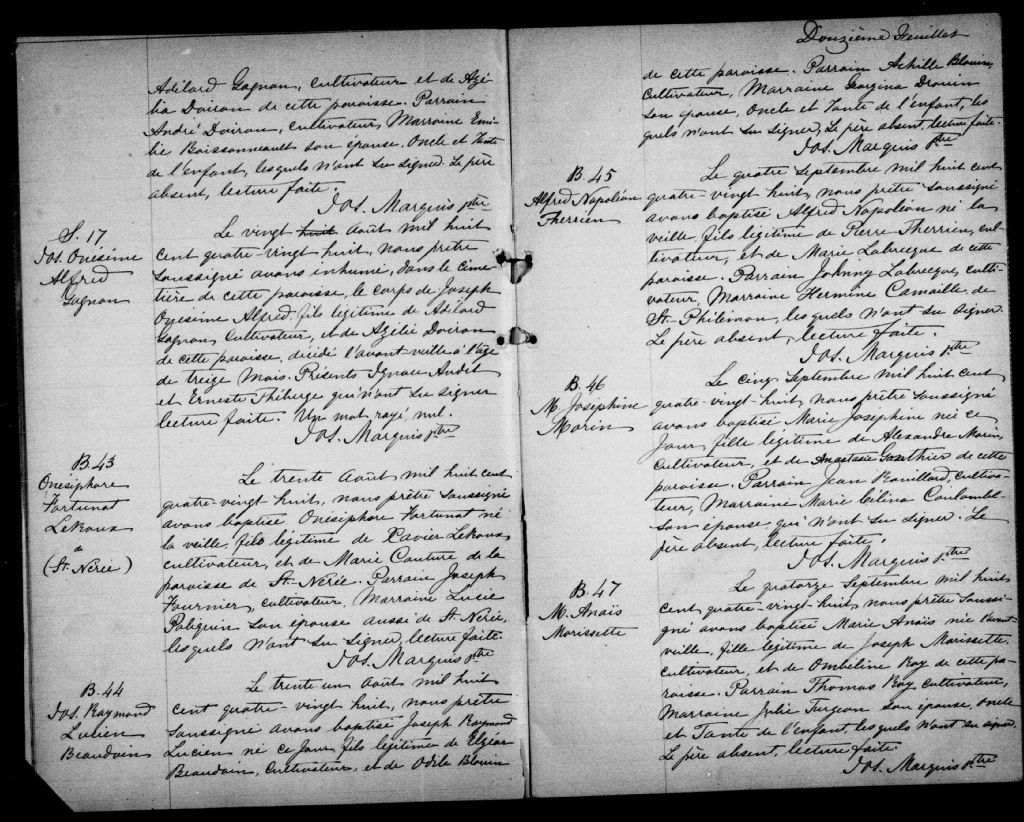 Adélard Gagnon, cultivateur et de Azé-
lia Doiron de cette paroisse. Parrain
André Doiron, cultivateur, Marraine Emi-
lie Boissonneault son épouse. Oncle et Tante
de l'enfant, lesquels n'ont su signer. Le père
absent, lecture faite.
Jos. Marquis ptre
S. 17
Jos. Onésime
Alfred
Gagnon
Le vingt huit Août mil huit
cent quatre-vingt huit, nous prêtre
soussigné avons inhumé, dans le cime-
tière de cette paroisse, le corps de Joseph
Onésime Alfred, fils légitime de Adélard
Gagnon, Cultivateur, et de Azélie Doiron
de cette paroisse, décédé l'avant-veille à l'âge
de treize mois. Présents Ignace Audet
et Erneste Théberge qui n'ont su signer
lecture faite. Un mot rayé nul.
Jos. Marquis ptre
B. 43
Onésiphore
Fortunat
LeRoux
de
(St. Nérée)
Le trente Août mil huit cent
quatre-vingt huit, nous prêtre soussigné
avons baptisé Onésiphore Fortunat né
la veille, fils légitime de Xavier LeRoux
cultivateur, et de Marie Couture de la
paroisse de St. Nérée. Parrain Joseph
Fournier, cultivateur, Marraine Lucie
son épouse aussi de St. Nérée,
lesquels n'ont su signer, lecture faite.
Jos. Marquis ptre
B. 44
Jos. Raymond
Lucien
Beaudoin
Le trente-un Août mil huit
cent quatre-vingt huit, nous prêtre
soussigné avons baptisé Joseph Raymond
Lucien né ce jour, fils légitime de Elzéar
Beaudoin, Cultivateur, et de Odile Blouin
Douzième Feuillet
de cette paroisse. Parrain Achille Blouin,
Cultivateur, Marraine Georgina Drouin
son épouse, Oncle et Tante de l'enfant, les
quels n'ont su signer, Le père absent, lecture faite.
Jos. Marquis ptre
B. 45
Alfred Napoléon
Therrien
Le quatre Septembre mil huit cent
quatre-vingt huit, nous prêtre soussigné
avons baptisé Alfred Napoléon né la
veille, fils légitime de Pierre Therrien, cul-
tivateur, et de Marie Labrecque de cette
paroisse. Parrain Johnny Labrecque, culti-
vateur, Marraine Hermine Camaille de
St. Philémon, lesquels n'ont su signer.
Le père absent, lecture faite.
Jos. Marquis ptre
B. 46
M. Joséphine
Morin
Le cinq Septembre mil huit cent
quatre-vingt-huit, nous prêtre soussigné
avons baptisé Marie Joséphine née ce
jour, fille légitime de Alexandre Morin,
Cultivateur, et de Anastasie Gauthier de cette
paroisse. Parrain Jean Rouillard, cultiva-
teur, Marraine Marie Célina Coulombe
son épouse, qui n'ont su signer. Le
père absent, lecture faite.
Jos. Marquis ptre
B. 47
M. Anaïs
Morissette
Le quatorze Septembre mil huit
cent quatre-vingt-huit, nous prêtre soussi-
gné avons baptisé Marie Anaïs née l'avant-
veille, fille légitime de Joseph Morissette
cultivateur, et de Ombéline Roy de cette pa-
roisse. Parrain Thomas Roy, cultivateur,
Marraine Julie Turgeon son épouse, oncle
et Tante de l'enfant, lesquels n'ont su signer.
Le père absent, lecture faite
Jos. Marquis ptre